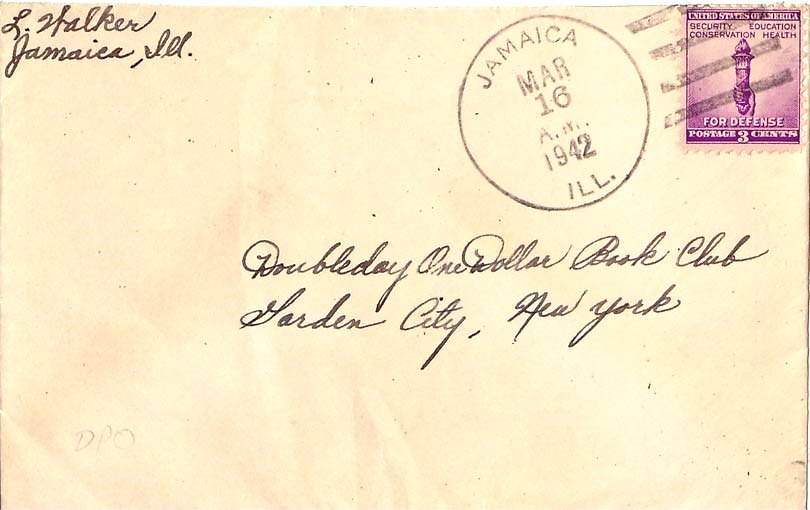 L. Walker
Jamaica, Ill.
JAMAICA
MAR
16
A.M.
1942
ILL.
UNITED STATES OF AMERICA
SECURITY EDUCATION
CONSERVATION HEALTH
FOR DEFENSE
POSTAGE 3 CENTS
Doubleday One Dollar Book Club
Garden City, New York
DPO